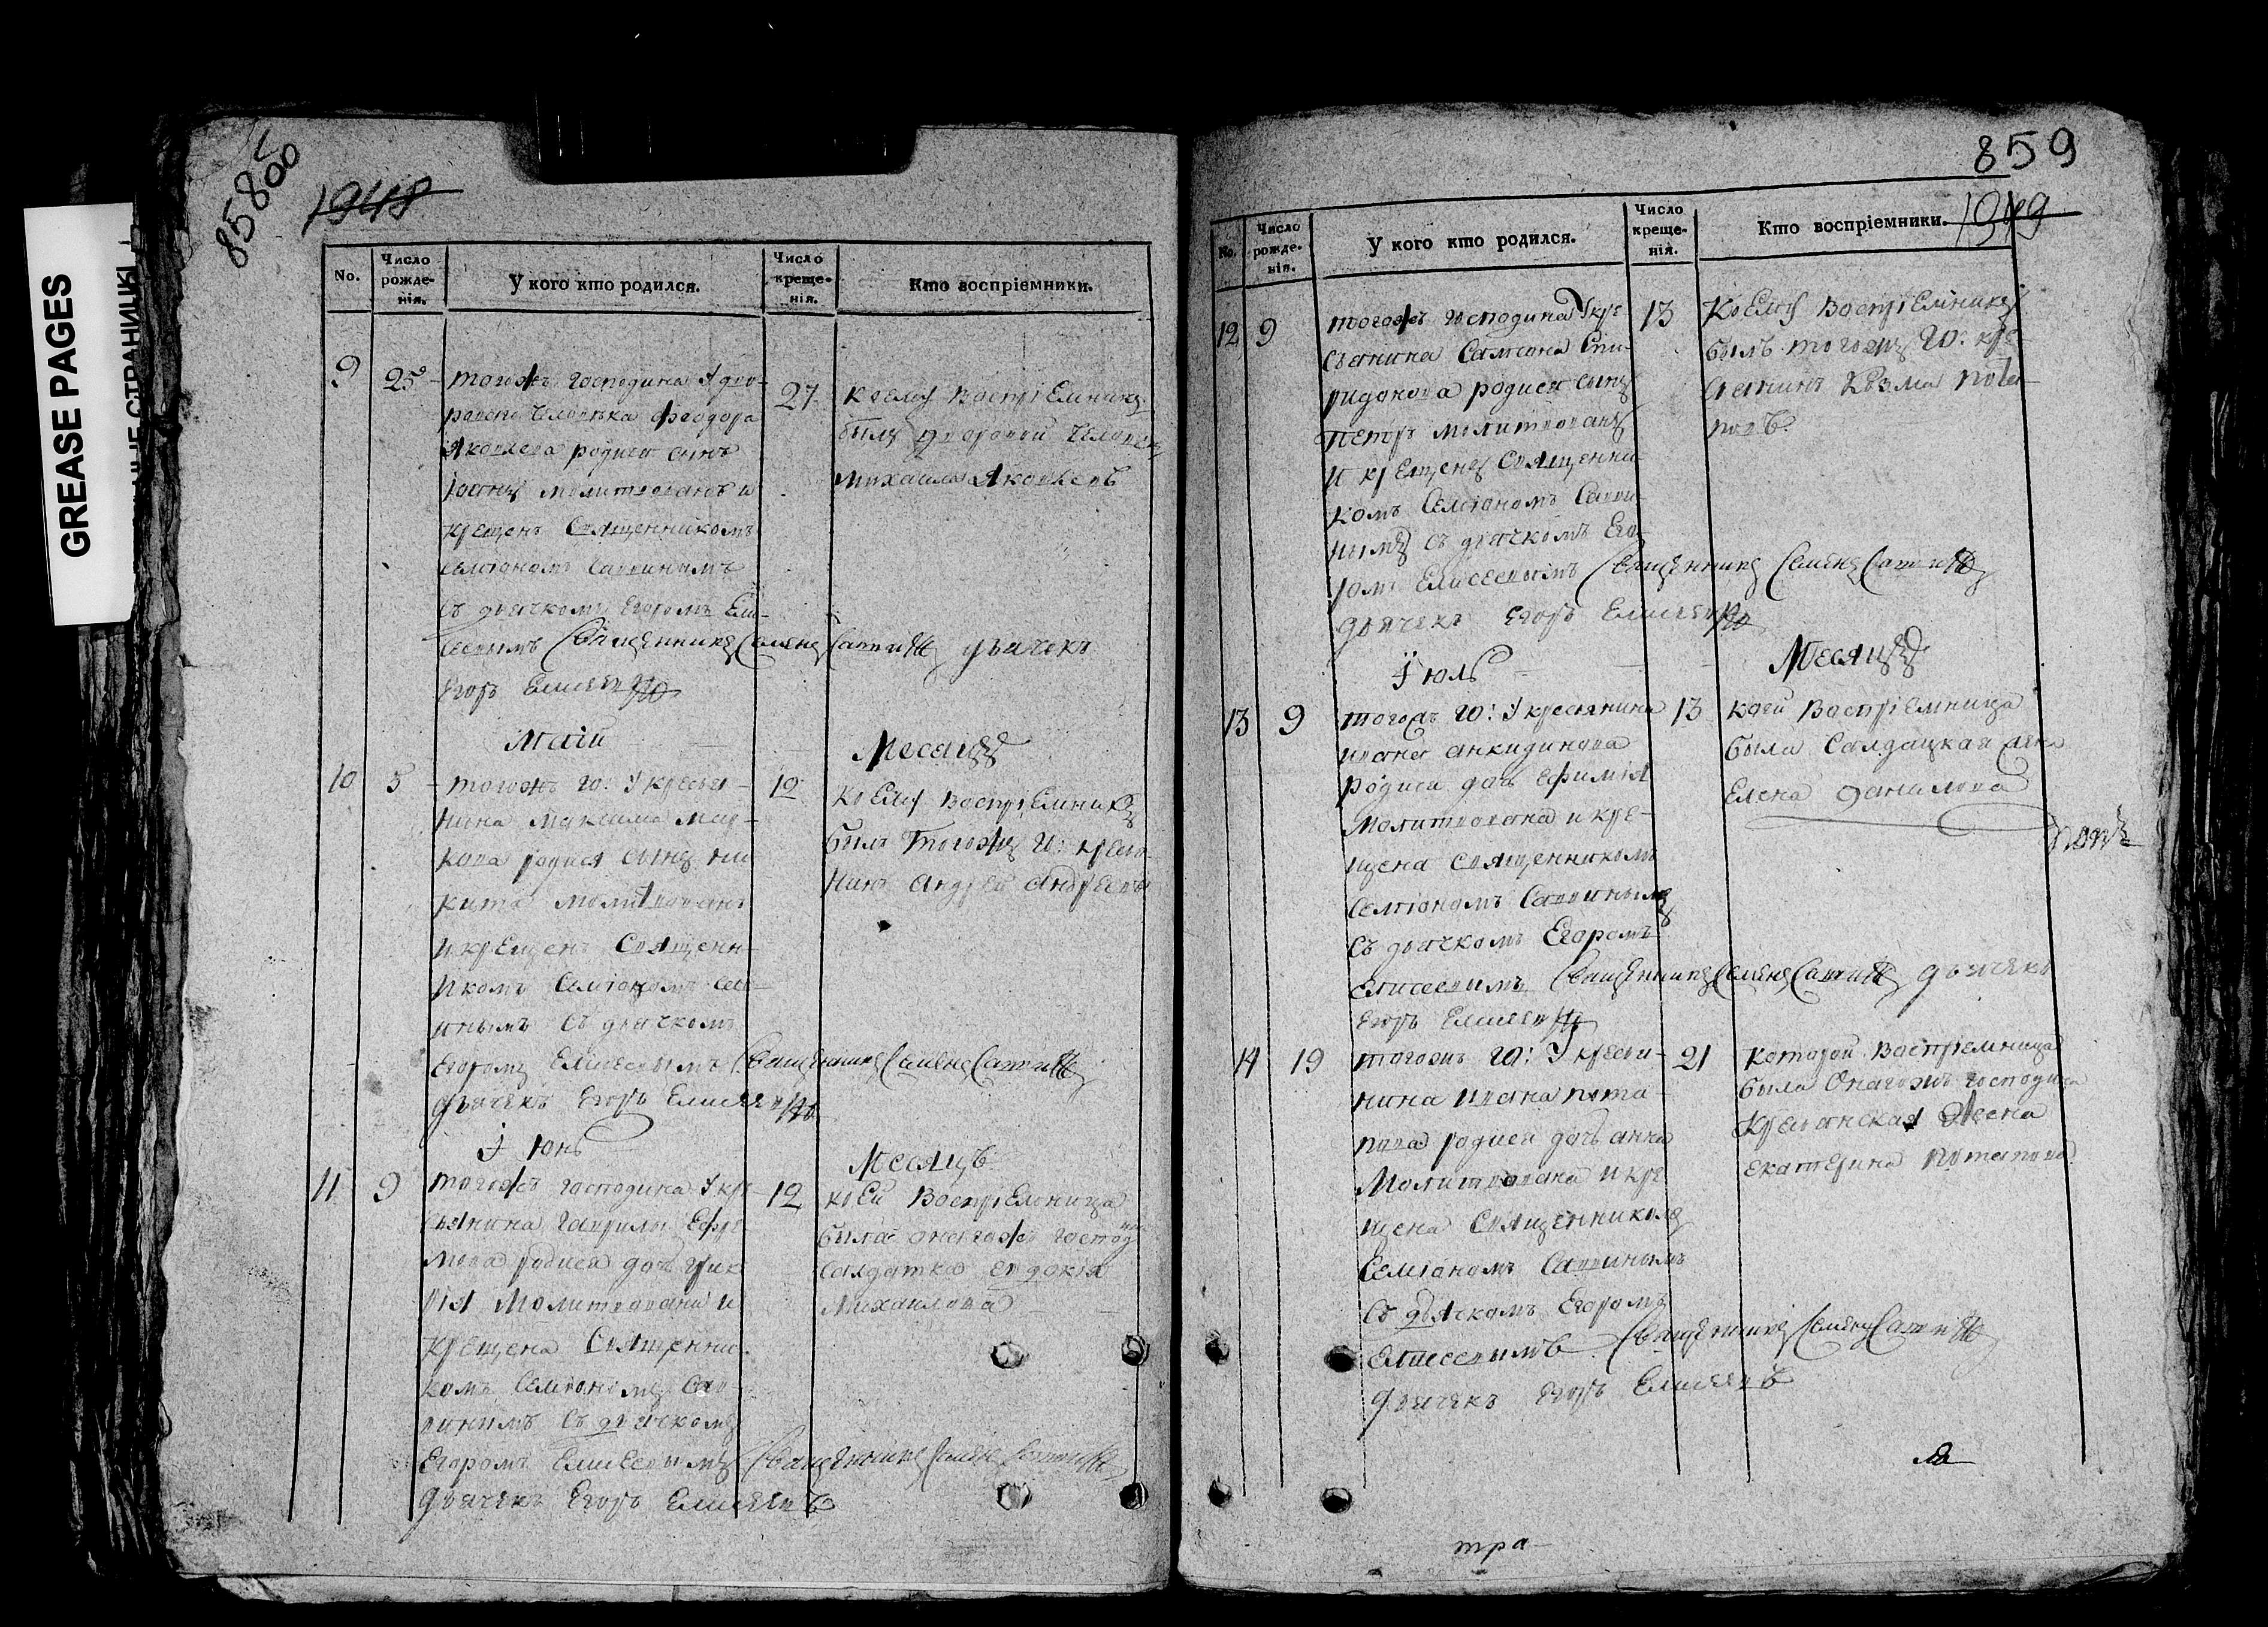 GREASE PAGES
858 об
1948
No.
Число рожде-нія.
У кого кто родился.
Число креще-нія.
Кто воспріемники.
9 25
тогожъ господина У дво-
роваго человѣка Феодора
Яковлева родися сынъ
Іоаннъ молитвованъ и
крещенъ Священникомъ
Семіономъ Саввинымъ
съ дьячкомъ Егоромъ Ели-
сеевымъ Священникъ Семенъ дьячекъ
Егоръ Елисеевъ
27
коему воспріемникъ
былъ дворовой человекъ
михаила Яковлевъ
Маій Месяцъ
10 5
тогожъ го: У кресья-
нина максима мар-
кова родися сынъ ни-
кита молитвованъ
и крещенъ Священн-
икомъ Семіономъ Сав-
инымъ съ дьячкомъ
Егоромъ Елисеевымъ Священникъ Семенъ
дьячекъ Егоръ Елисеевъ
12
коему воспріемникъ
былъ тогожъ го: кресья-
нинъ андрей андреевъ
Іюнь Месяцъ
11 9
тогожъ господина У кре-
сьянина гаврилы Ефре-
мова родися дочь
молитвована и
крещена Священни-
комъ Семіономъ Сав-
винымъ съ дьячкомъ
Егоромъ Елисеевымъ Священникъ Семенъ
дьячекъ Егоръ Елисеевъ
12
коей воспріемница
была онагожъ господина
Салдатка евдокія
Михаилова
859
1949
No.
Число рожде-нія.
У кого кто родился.
Число креще-нія.
Кто воспріемники.
12 9
тогожъ господина У кре-
сьянина Самсона Спи-
ридонова родися сынъ
Петръ молитвованъ
и крещенъ Священни-
комъ Семіономъ Савви-
нымъ съ дьячкомъ Его-
ромъ Елисеевымъ Священникъ Семенъ
дьячекъ Егоръ Елисеевъ
13
Коему воспріемникъ
былъ тогожъ го: кре-
сьянинъ Козма пота-
повъ
Іюль Месяцъ
13 9
тогожъ го: У кресьянина
ивана анкидинова
родися дочь ефимія
молитвована и кре-
щена священникомъ
Семіономъ Саввинымъ
съ дьячкомъ Егоромъ
Елисеевымъ Священникъ Семенъ дьячекъ
Егоръ Елисеевъ
13
коей воспріемница
была Салдацкая жена
Елена данилова
14 19
тогожъ го: У кресья-
нина ивана пота-
пова родися дочь анна
молитвована и кре-
щена Священникомъ
Семіономъ Саввинымъ
съ дьячкомъ Егоромъ
Елисеевымъ Священникъ Семенъ
дьячекъ Егоръ Елисеевъ
21
которой воспріемница
была онагожъ господина
Кресьянская жена
екатерина потапова
тра